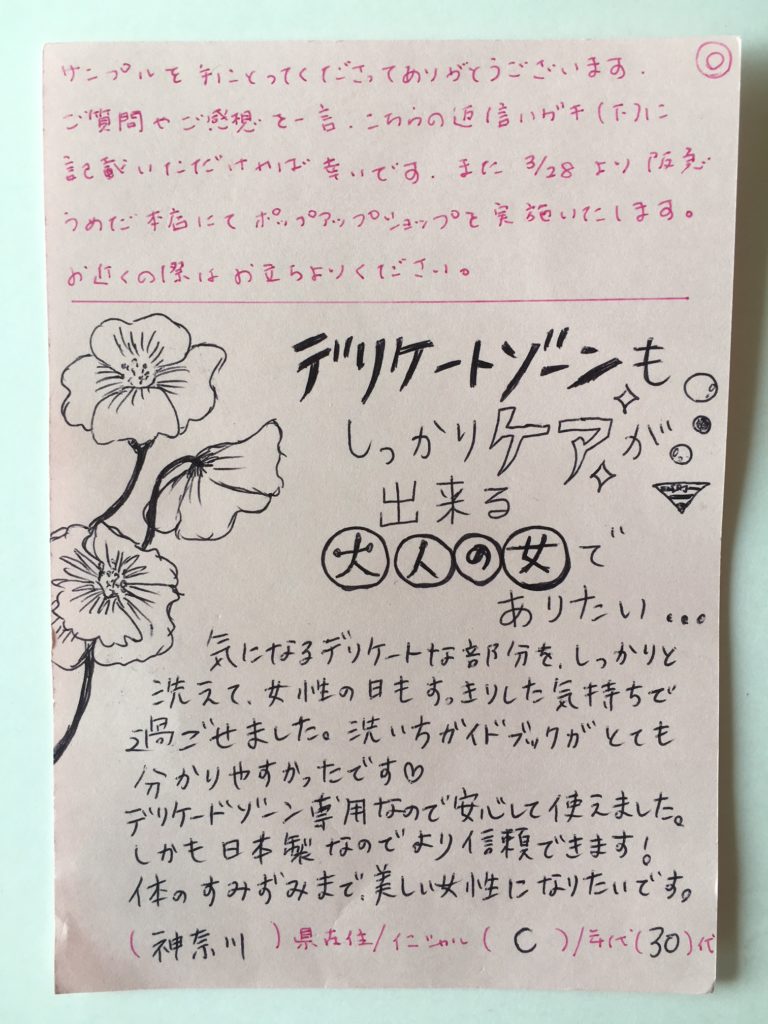 ◎
サンプルを手にとってくださってありがとうございます.
ご質問やご感想を一言、こちらの返信ハガキ(下)に
記載いただければ幸いです. また 3/28 より 阪急
うめだ本店にて ポップアップショップを実施いたします。
お近くの際はお立ちよりください。
デリケートゾーンも
しっかりケアが
出来る
大人の女で
ありたい...
気になるデリケートな部分を、しっかりと
洗えて、女性の日もすっきりした気持ちで
過ごせました。洗い方ガイドブックがとても
分かりやすかったです♡
デリケードゾーン専用なので安心して使えました。
しかも日本製なのでより信頼できます!
体のすみずみまで、美しい女性になりたいです。
(神奈川)県在住/イニシャル(C)/年代(30)代